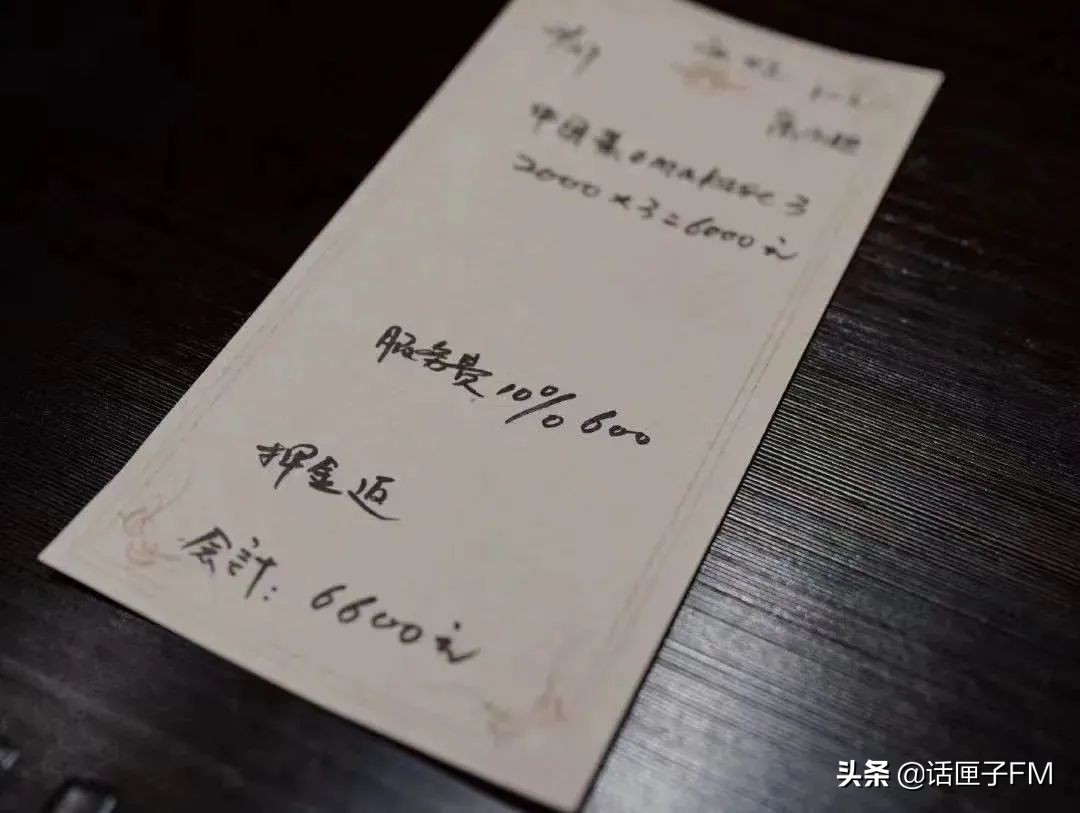 中国慕omakase 3
2000×3=6000元
服务费10% 600
押金返
会計：6600元
头条 @话匣子FM